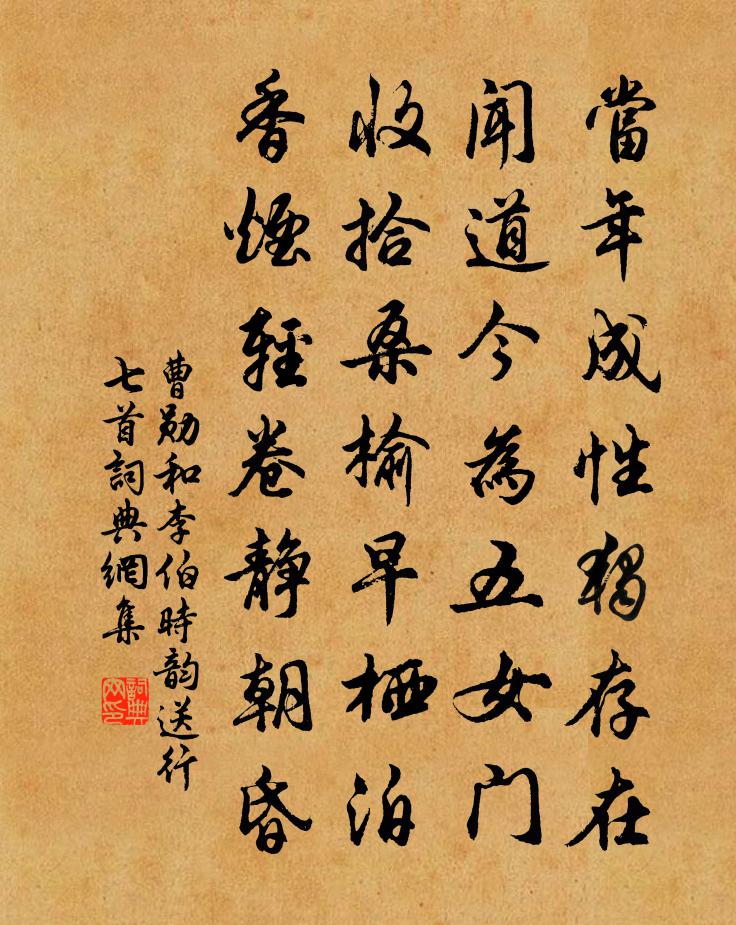 當年成性獨存在
聞道今為五女门
收拾桑榆早栖泊
香煙輕卷靜朝昏
曹勛和李伯時韵送行
七首詞典網集
詞典网印